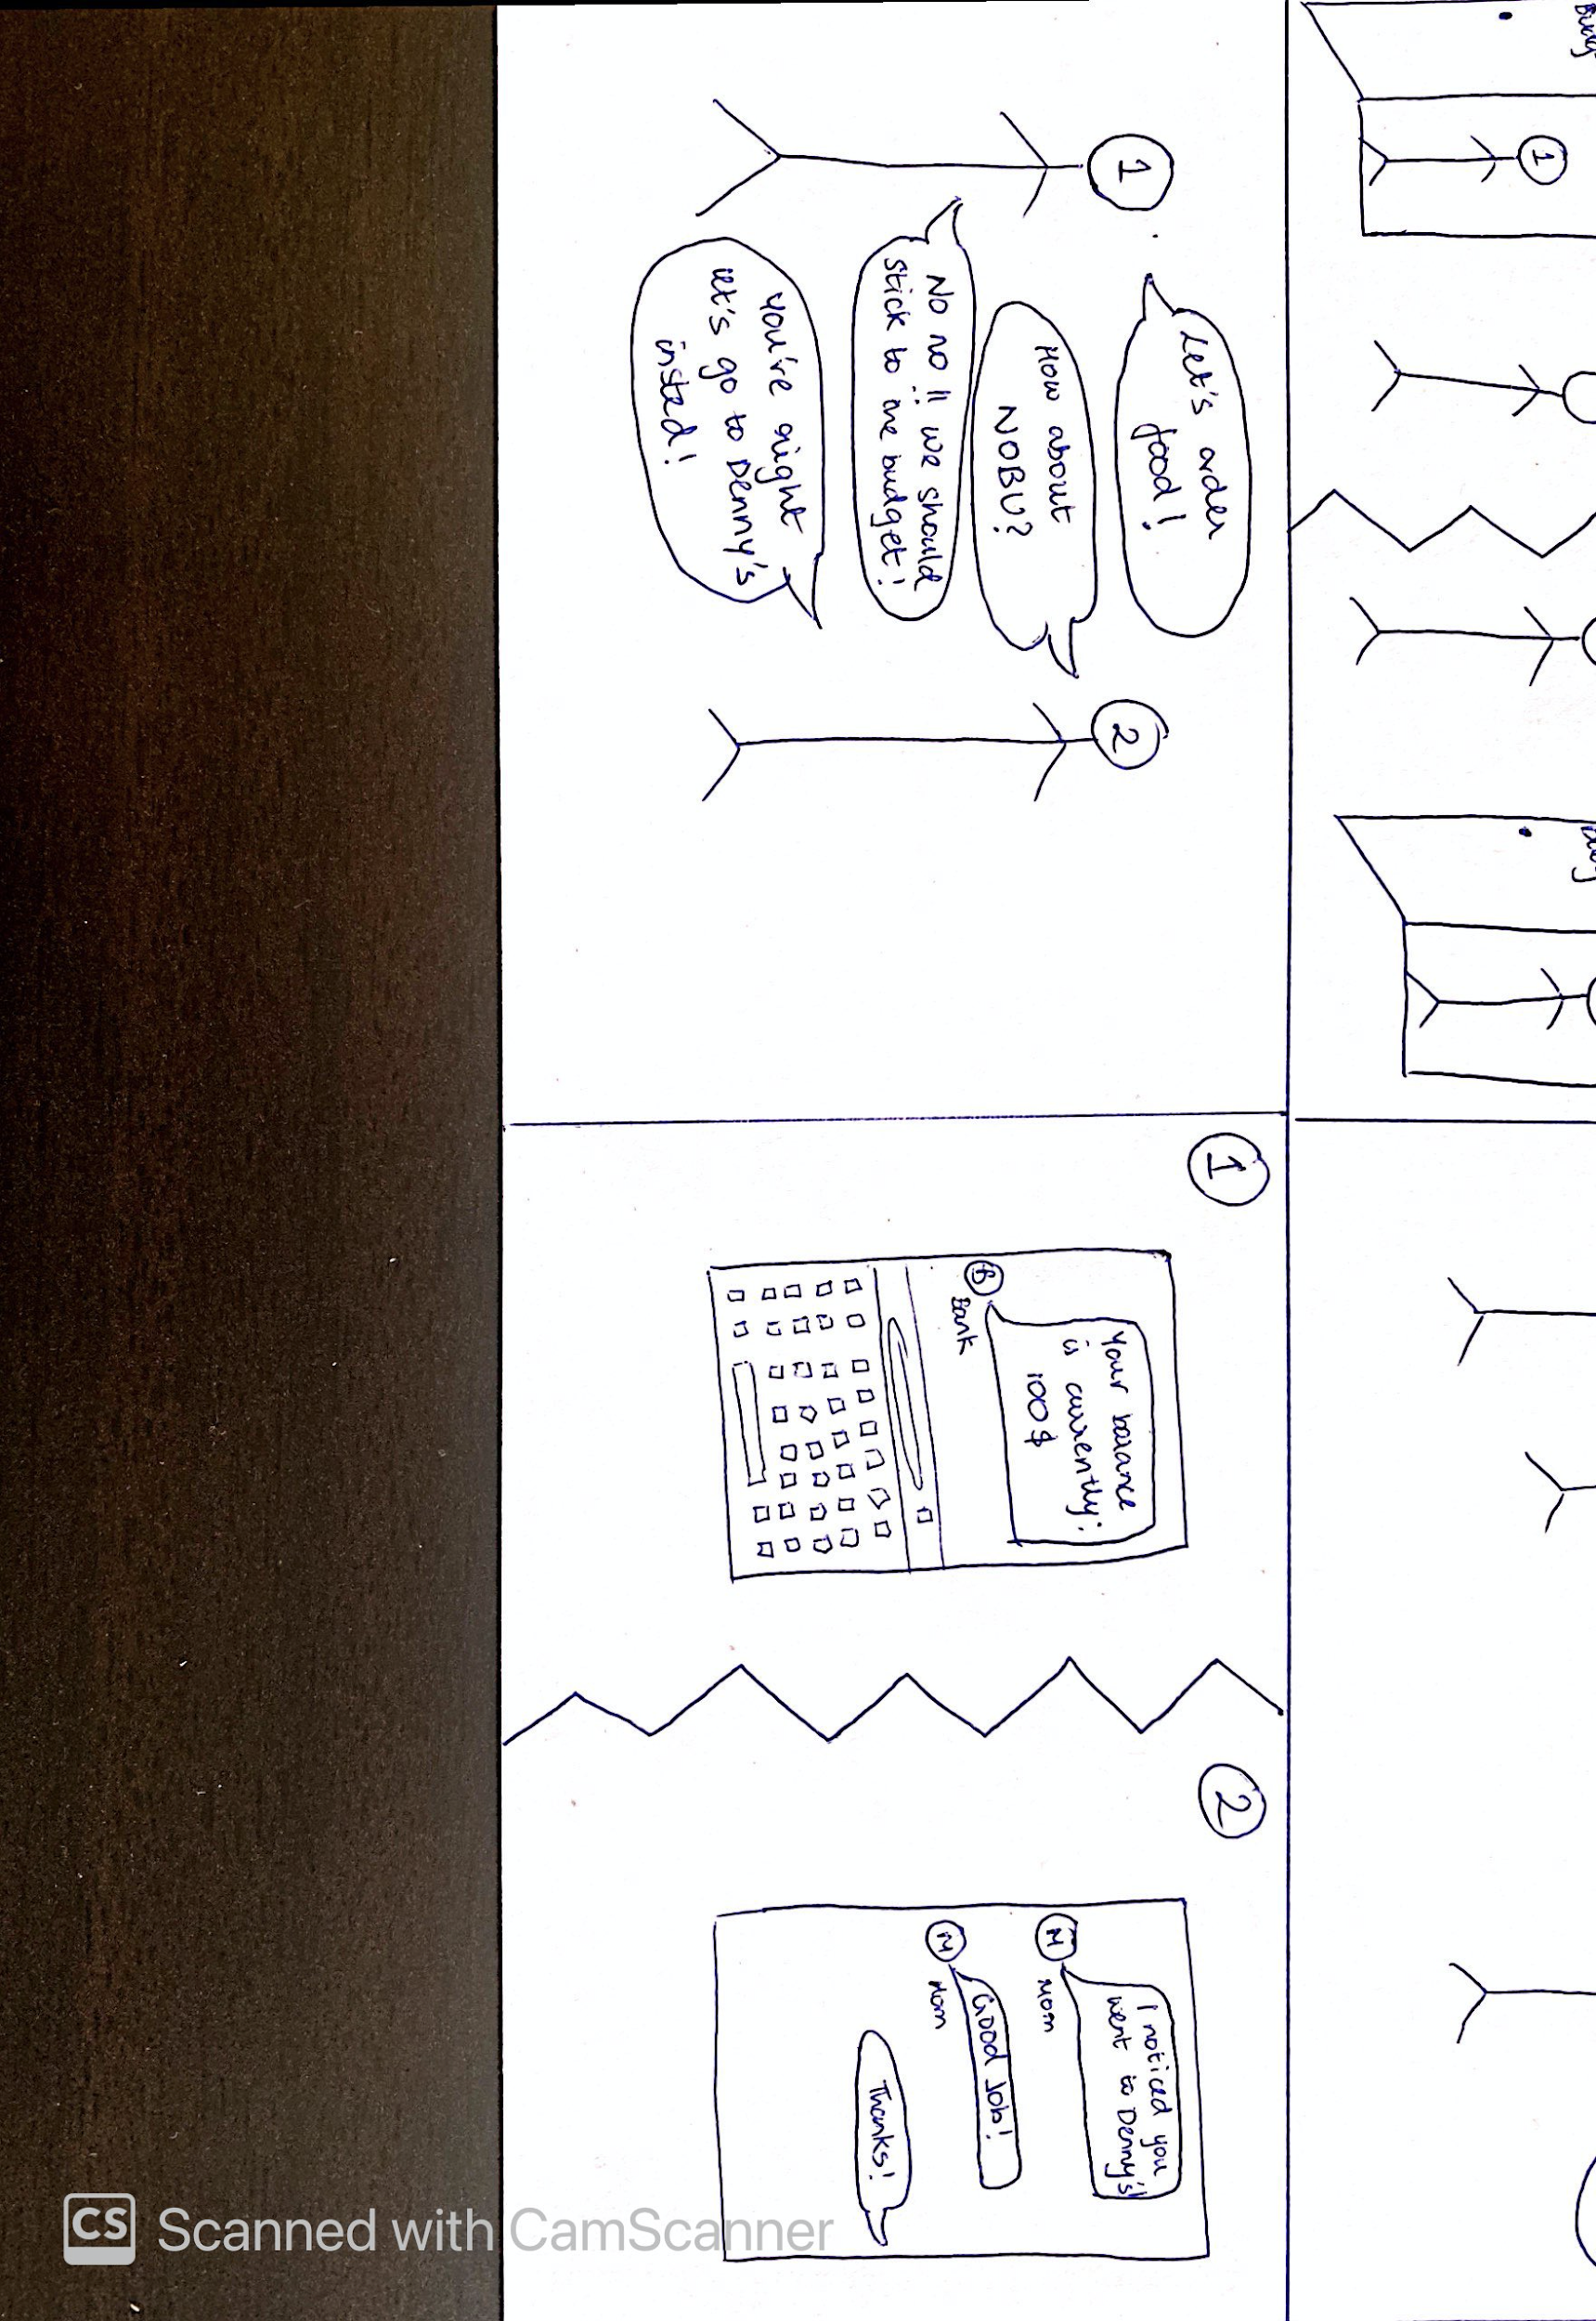 1
1
Let's order
food!
How about
NOBU?
No no !! we should
stick to the budget!
You're right
let's go to Denny's
insted!
2
1
Your balance
is currently:
100$
B
Bank
2
I noticed you
went to Denny's!
M
Mom
Good Job!
M
Mom
Thanks!
CS Scanned with CamScanner